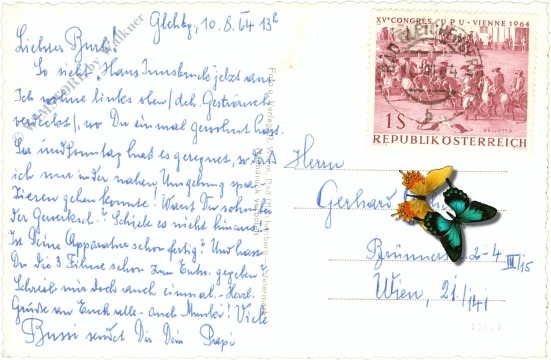 Glchbg, 10.8.64 13h
Liebster Burli!
So sieht Haus Innsbruck jetzt aus.
Ich wohne links oben/ dch. Gesträuch
verdeckt/, wo Du einmal gewohnt hast.
Sa und Sonntag hat es geregnet, so daß
ich nur in der nahen Umgebung spa-
zieren gehen konnte! Warst Du schon bei
der Genoksch.? Schiebe es nicht hinaus!
Ist Deine Apparatur schon fertig? Und hast
Du die 3 Filme schon zum Entw. gegeben?
Schreib mir doch auch einmal. - Herzl.
Grüße an Euch alle - auch Munki! Viele
Bussi sendet Dir Dein Papi
XV^e CONGRÈS · U P U · VIENNE 1964
BAD GLEICHENBERG
1 S
BELLOTTO
REPUBLIK ÖSTERREICH
Herrn
Gerhard
Brünnerstr. 2-4
III/15
Wien, 21/141